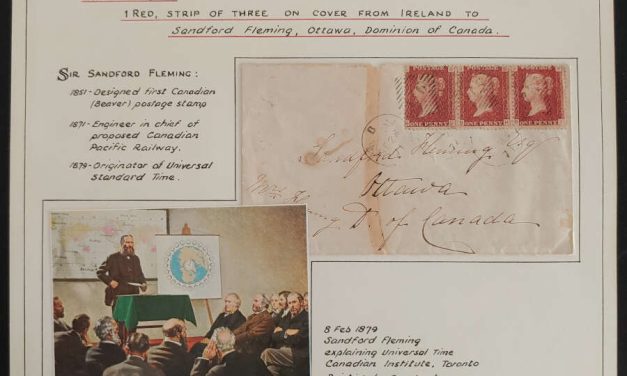 1 Red, strip of three on cover from Ireland to
Sandford Fleming, Ottawa, Dominion of Canada.
Sir Sandford Fleming:
1851-Designed first Canadian
(Beaver) postage stamp
1871-Engineer in chief of
proposed Canadian
Pacific Railway.
1879-Originator of Universal
Standard Time.
ONE PENNY
ONE PENNY
ONE PENNY
Sandford Fleming Esq
Ottawa
D. of Canada
8 Feb 1879
Sandford Fleming
explaining Universal Time
Canadian Institute, Toronto